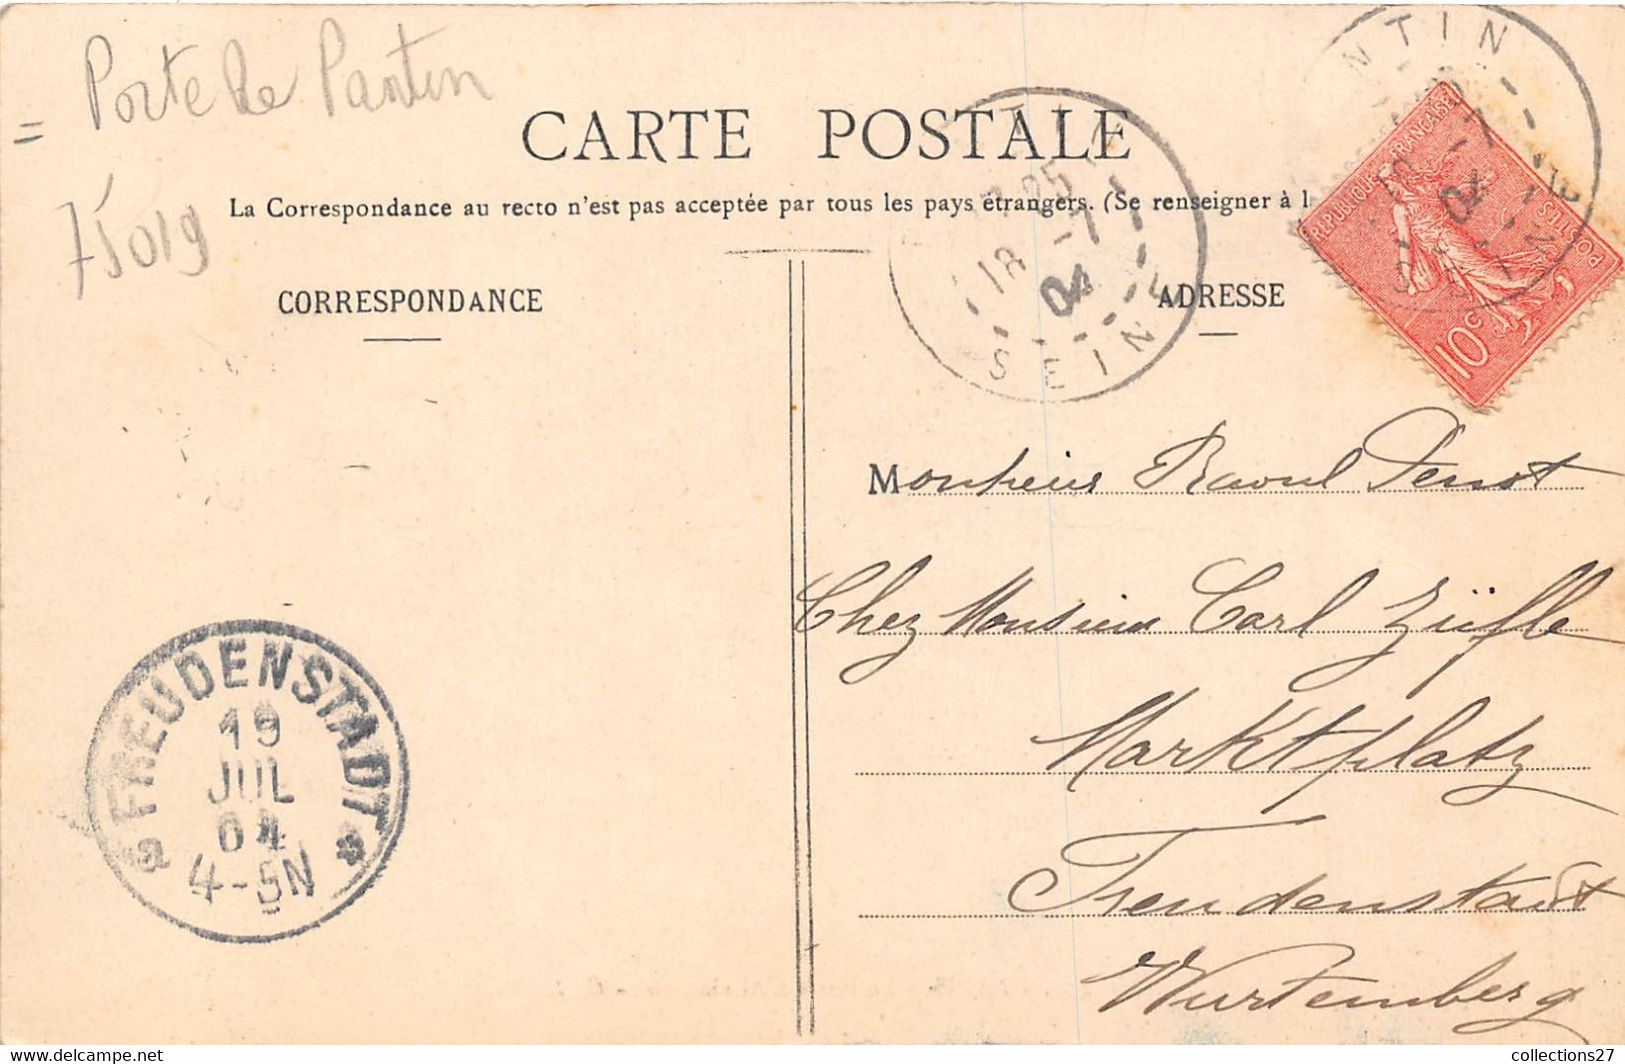 = Porte de Pantin
75019
CARTE POSTALE
La Correspondance au recto n'est pas acceptée par tous les pays étrangers. (Se renseigner à l
CORRESPONDANCE
ADRESSE
NTIN
18 -7
04
SEINE
RÉPUBLIQUE FRANÇAISE
POSTES
10c
Monsieur Raoul Penot
Chez Monsieur Carl Züfle
Marktplatz
Freudenstadt
Wurtemberg
FREUDENSTADT
19
JUL
04
4-5N
collections27